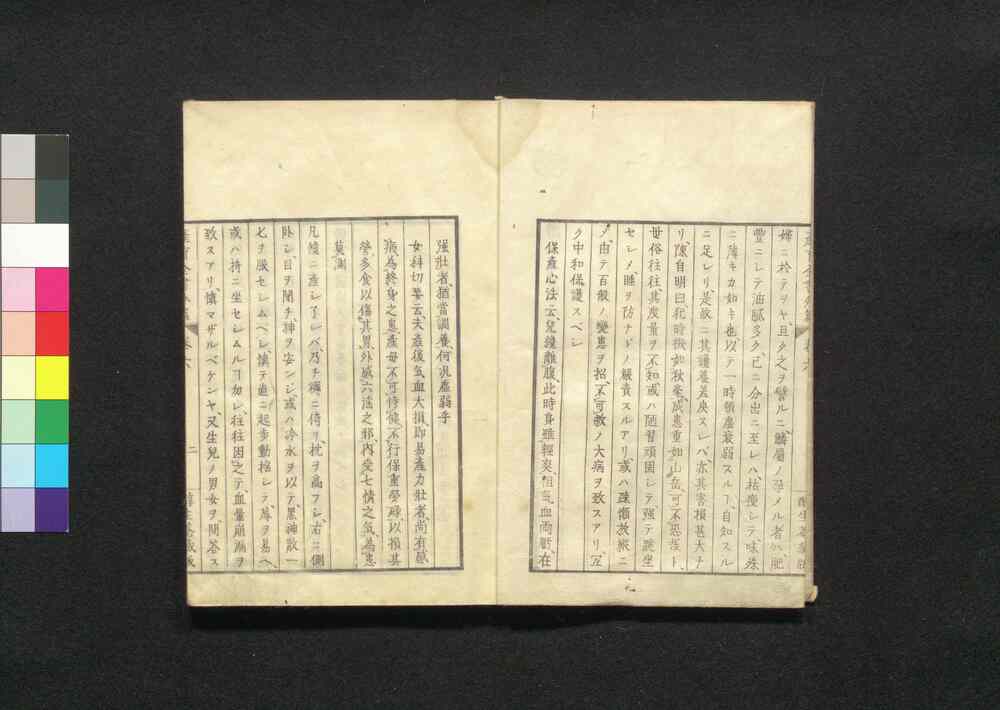 婦ニ於テヲヤ、且夕之ヲ譬ルニ、鱗屬ノ孕メル者ハ肥
豐ニシテ油膩多ク、已ニ分出ニ至レハ枯瘦シテ味殊
ニ薄キカ如キ也、以テ一時頓虛衰弱スルヿ、自知スル
ニ足レリ、是故ニ其護養差失スレバ、亦其害損甚大ナ
リ、陳自明曰、犯時微如秋毫、成患重如山岳、可不恐哉ト、
母俗往往、其度量ヲ不知、或ハ陋習頑固シテ強テ跪坐
セシメ睡ヲ防ナドノ緩責スルアリ、或ハ疎懶放縱ニ
ノ、由テ百般ノ變患ヲ招、不可救ノ大病ヲ致スアリ、宜
ク中和保護スベシ
保產心法云、兒纔離腹、此時身雖輕爽、但氣血兩虧、在
強壯者、猶當調養、何況虛弱乎
女科切要云、夫產後氣血大損、即易產力壯者、尚有感
病為終身之患、產母不可恃健、不行保重、勞碌以損其
勞、多食以傷其胃、外感六淫之邪、內受七情之氣、為患
莫測
凡纔ニ產シ了レバ、乃チ褥ニ倚リ、枕ヲ高フシ、右ニ側
臥シ、目ヲ閉チ、神ヲ安ンジ、或ハ冷水ヲ以テ、黑神散一
匕ヲ服セシムベシ、愼テ遽ニ起步動搖シテ、蓐ヲ易ヘ
或ハ特ニ坐セシムルヿ勿レ、往往因之テ血暈崩漏ヲ
致スアリ、愼マザルベケンヤ、又生兒ノ男女ヲ、問答ス
二